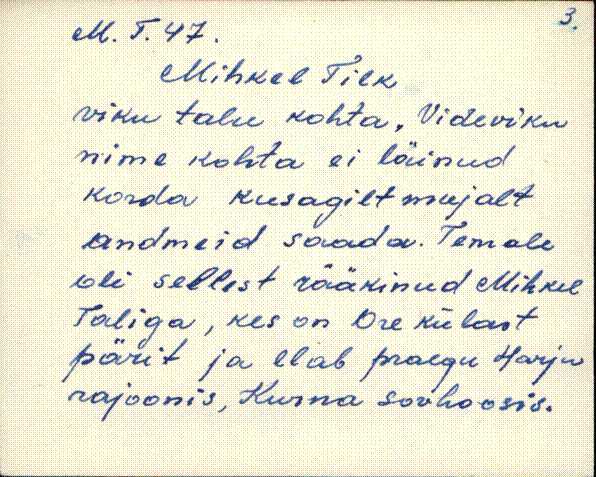 3.
M. T. 47.
Mihkel Tilk
viku talu kohta. Videviku
nime kohta ei läinud
korda kusagilt mujalt
andmeid saada. Temale
oli sellest rääkinud Mihkel
Taliga, kes on Ore külast
pärit ja elab praegu Harju
rajoonis, Kurna sovhoosis.